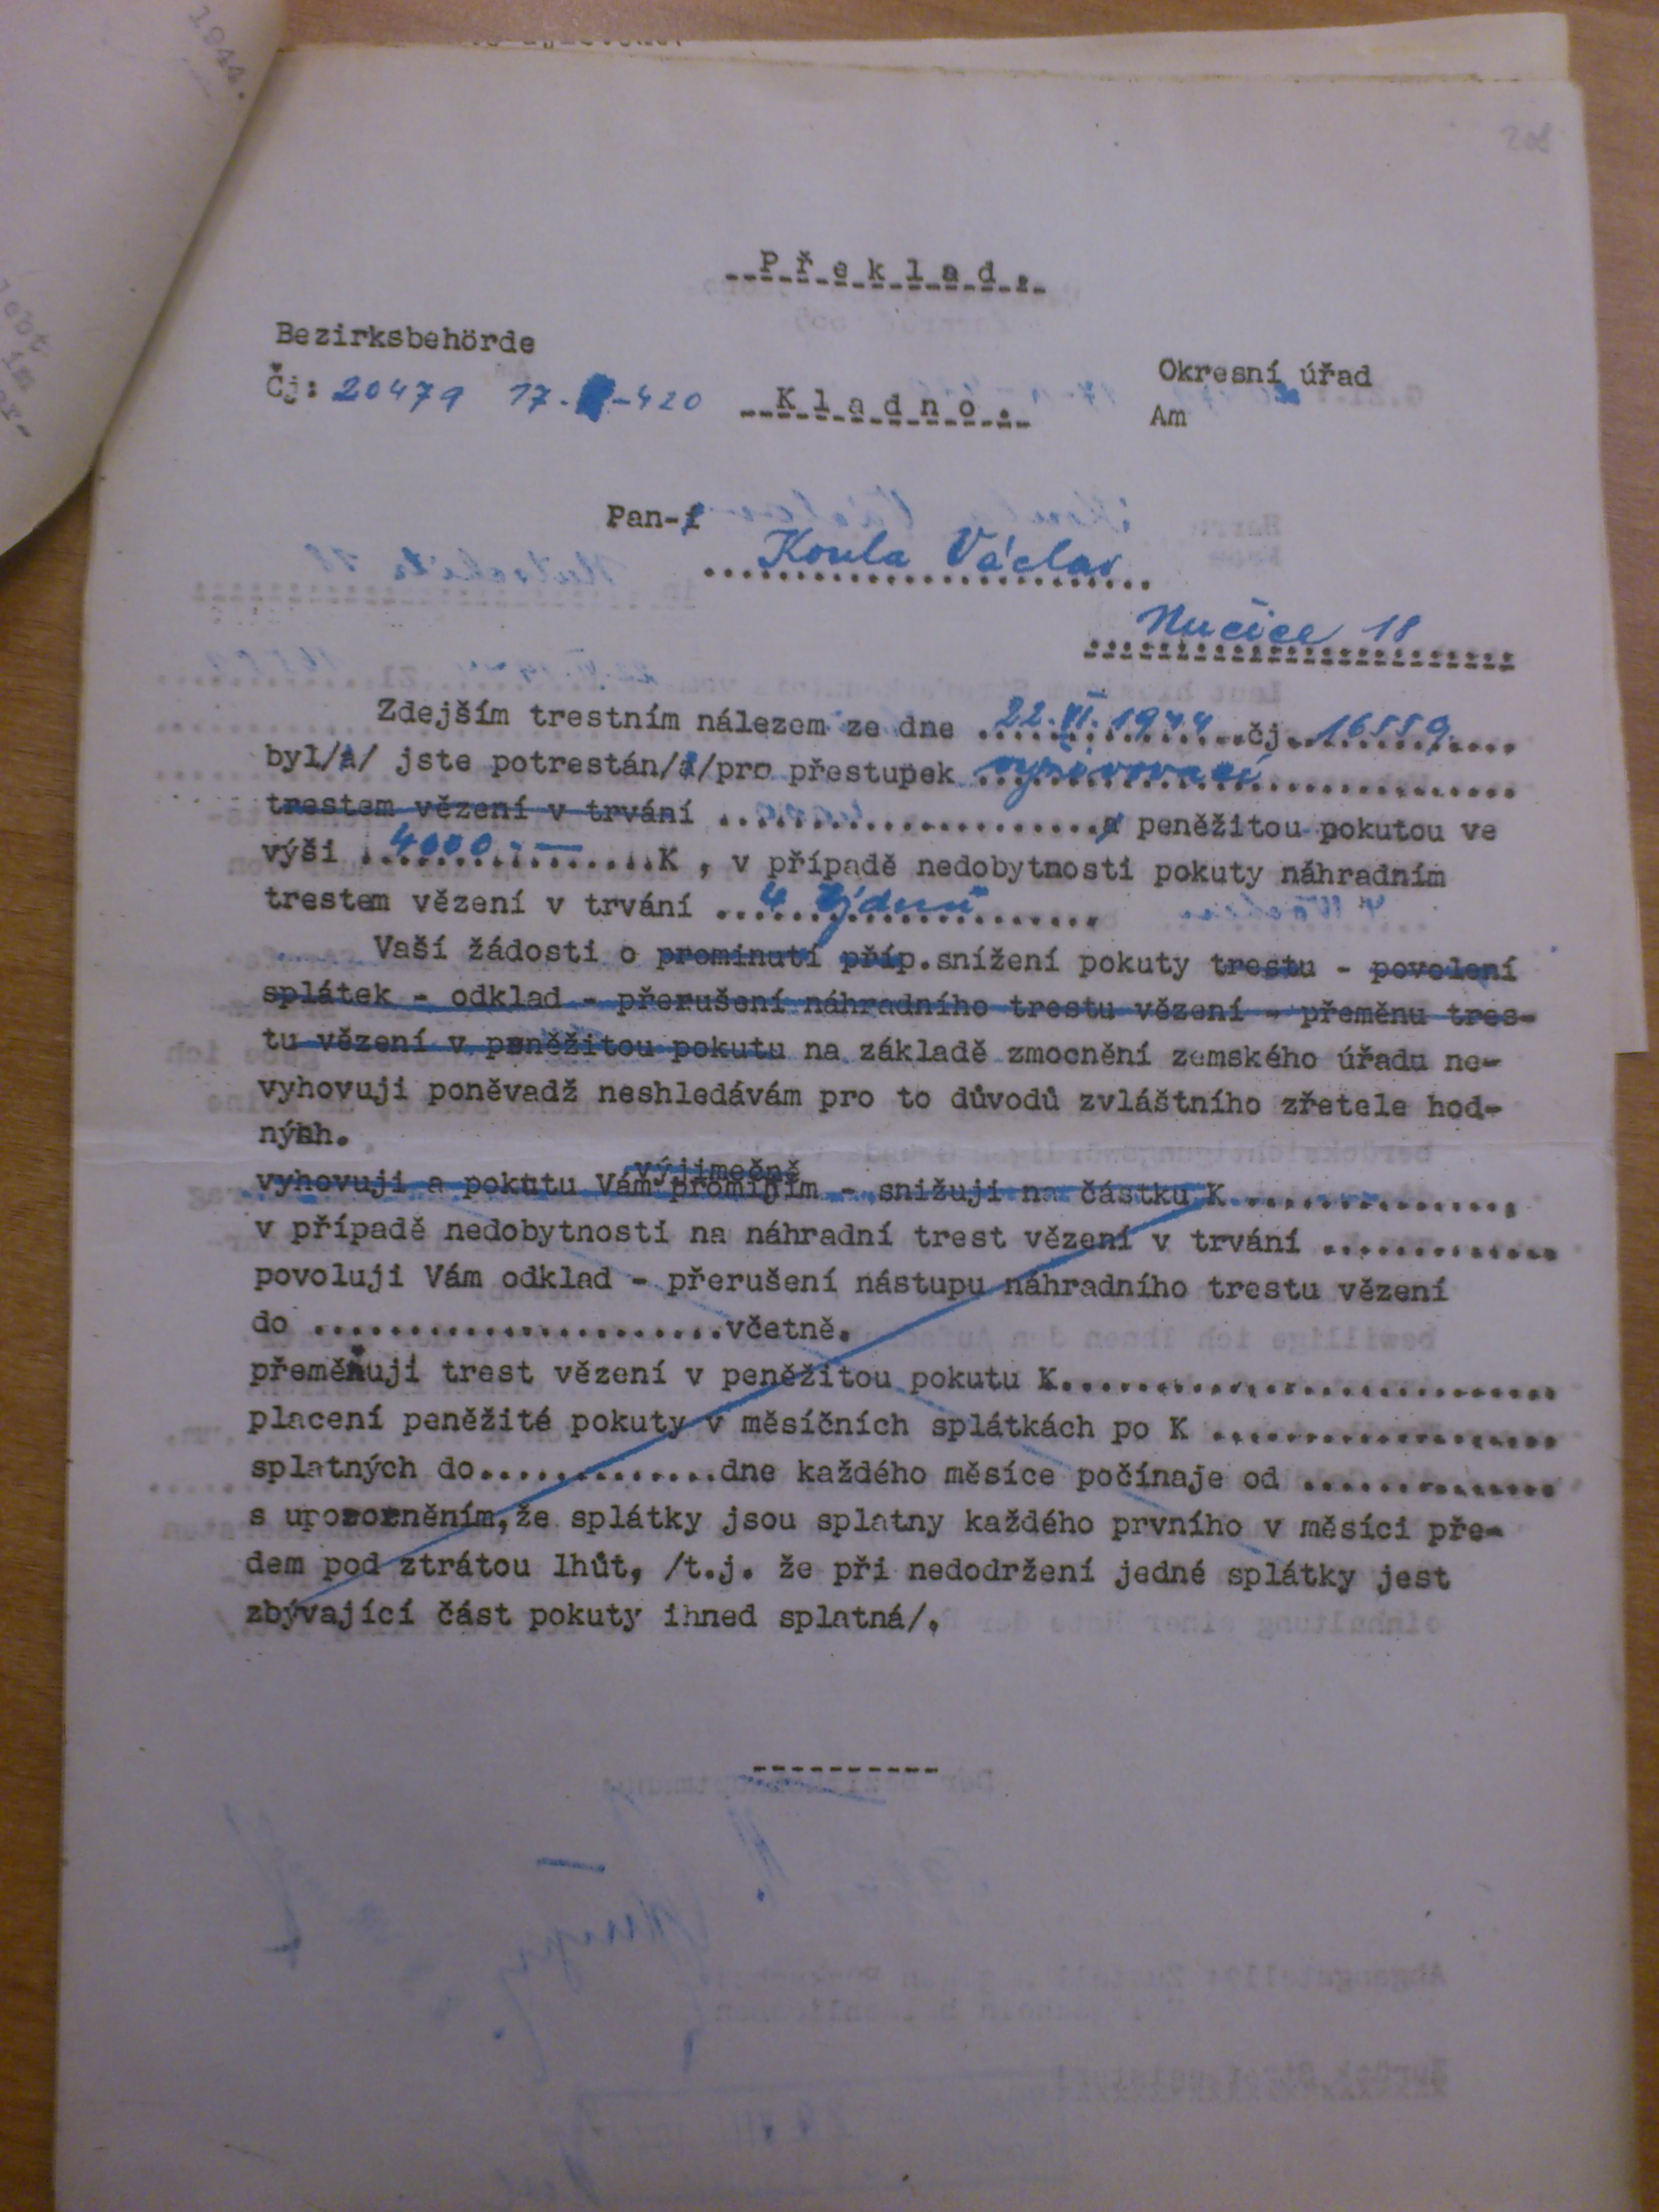 1944.
208
Překlad.
Bezirksbehörde
Okresní úřad
Čj: 20479 17. -420
Kladno.
Am
Pan-í
Koula Václav
Nučice 18
Zdejším trestním nálezem ze dne 22.VI.1944 čj. 16559
byl/a/ jste potrestán/a/pro přestupek vyživovací
trestem vězení v trvání ....................a peněžitou pokutou ve
výši 4000.— K , v případě nedobytnosti pokuty náhradním
trestem vězení v trvání 4 týdnů
Vaší žádosti o prominutí příp.snížení pokuty trestu - povolení
splátek - odklad - přerušení náhradního trestu vězení - přeměnu tres-
tu vězení v peněžitou pokutu na základě zmocnění zemského úřadu ne-
vyhovuji poněvadž neshledávám pro to důvodů zvláštního zřetele hod-
ných.
výjimečně
vyhovuji a pokutu Vám promíjím - snižuji na částku K...............,
v případě nedobytnosti na náhradní trest vězení v trvání .............
povoluji Vám odklad - přerušení nástupu náhradního trestu vězení
do ......................včetně.
přeměňuji trest vězení v peněžitou pokutu K...........................
placení peněžité pokuty v měsíčních splátkách po K ...................
splatných do..............dne každého měsíce počínaje od ..............
s upozorněním,že splátky jsou splatny každého prvního v měsíci pře-
dem pod ztrátou lhůt, /t.j. že při nedodržení jedné splátky jest
zbývající část pokuty ihned splatná/.